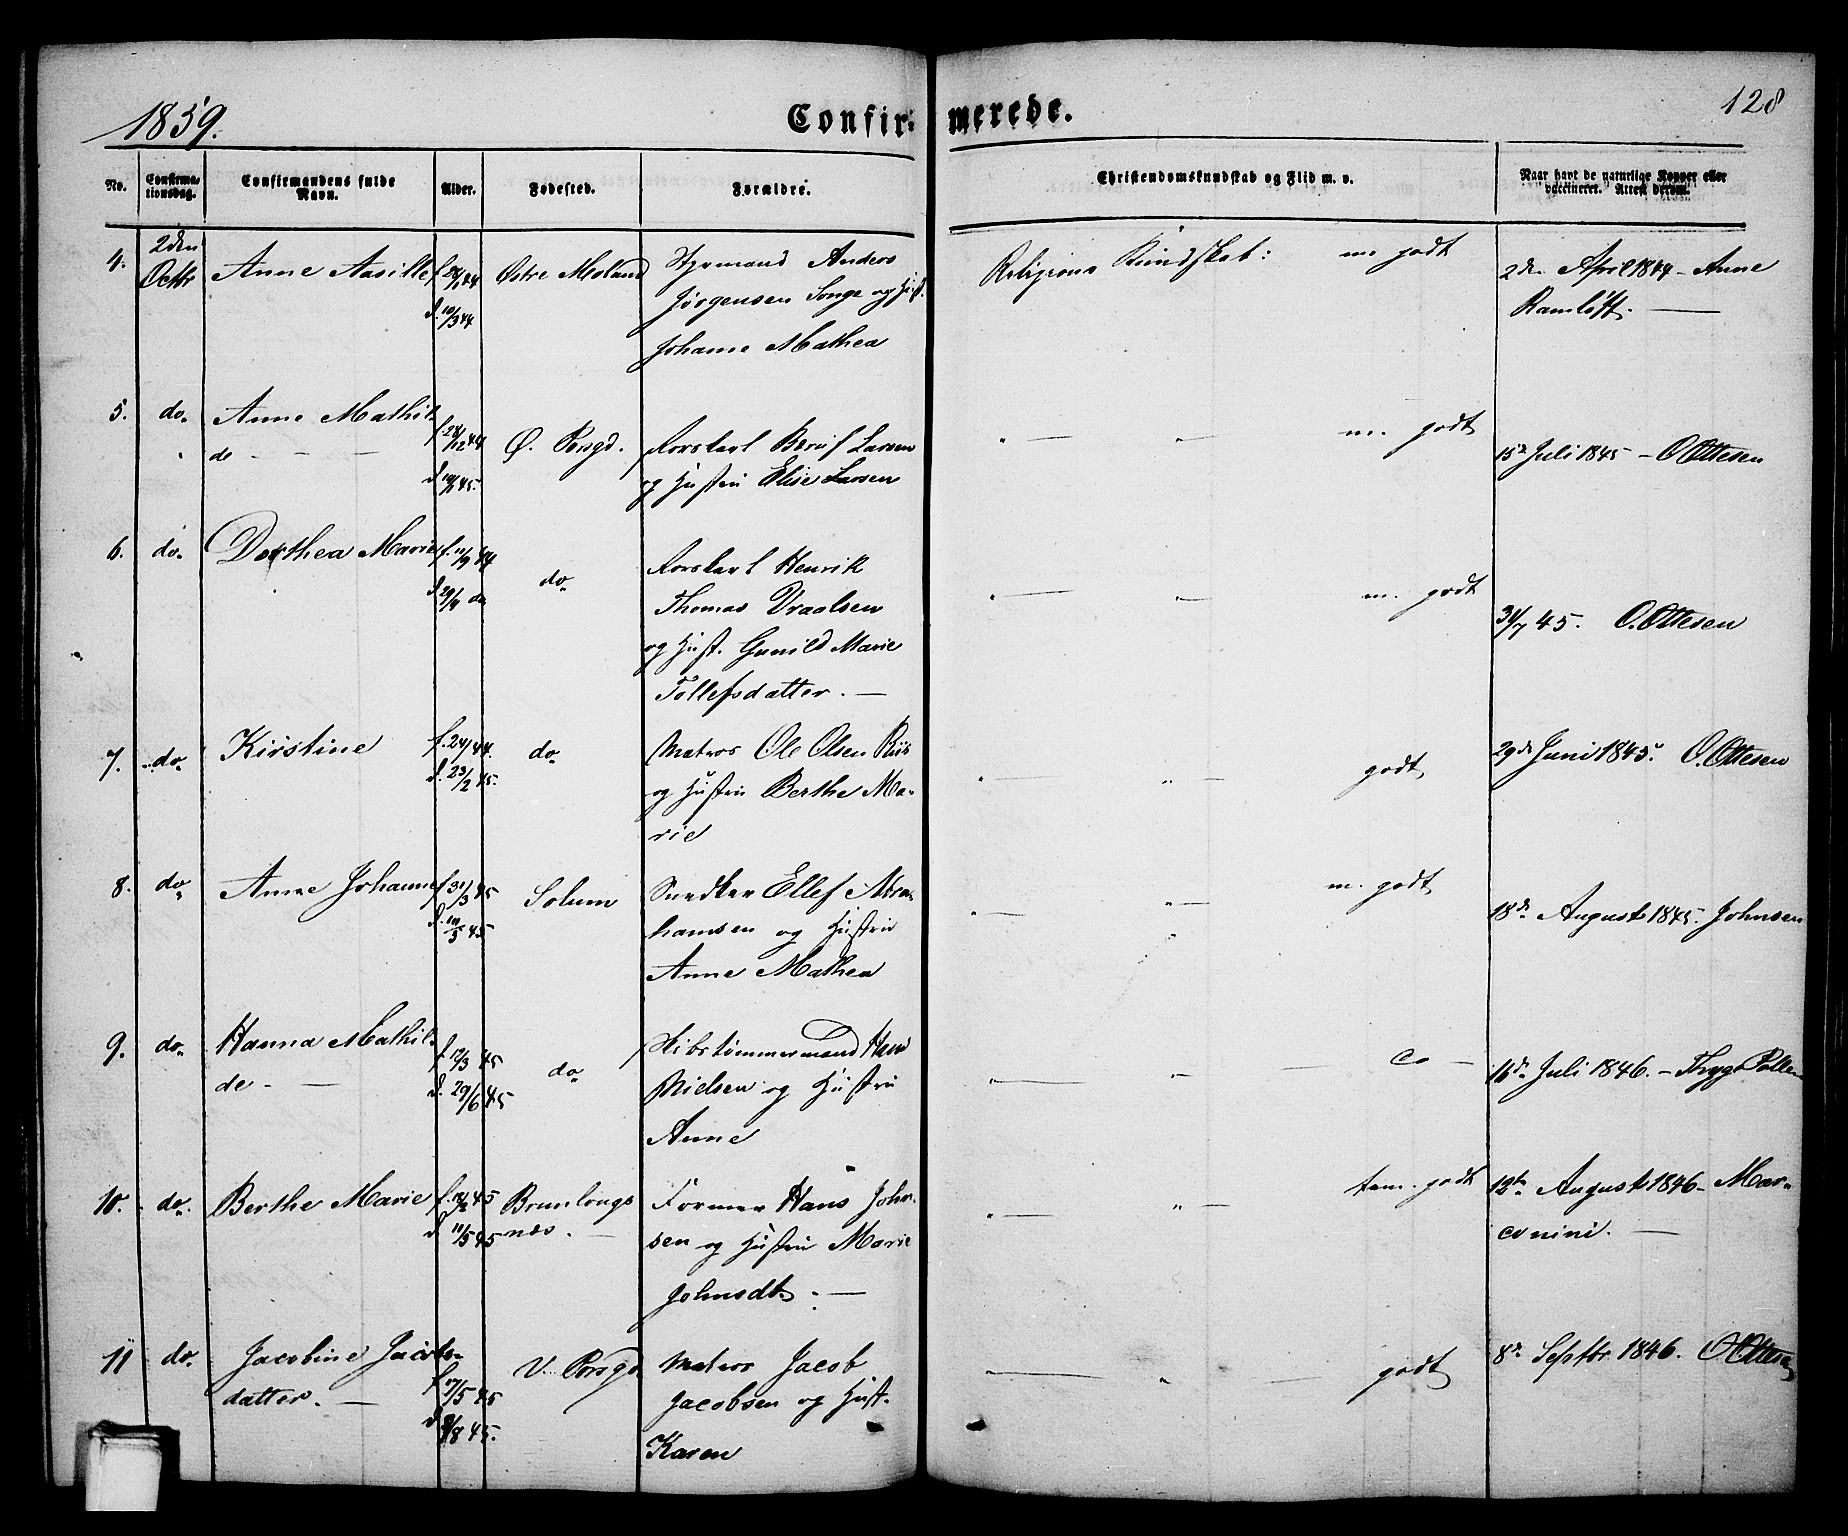 1859.
Confir=
merede.
128
No.
Confirma=
tionsdag.
Confirmandens fulde
Navn.
Alder.
Fødested.
Forældre.
Christendomskundskab og Flid m. v.
Naar havt de naturlige Kopper eller
vaccineret. Attest derom.
4.
2den
Octbr
Anne
f.
d. 10/3 44
Østre Moland
Styrmand Anders
Jørgensen Songe og Hust.
Johanne Mathea
Religions Kundskab: m. godt
2den April 1844 - Anne
Ramløft. —
5.
do.
Anne Mathil-
de - — —
f. 28/12 44
d. 19/1 45.
Ø. Porsgd.
Rorskarl Berul Larsen
og Hustru Elise Larsen
" — " m. godt
15de Juli 1845 - O Ottesen
6.
do.
Dorthea Marie
f. 11/9 44
d. 29/9 do
do.
Rorskarl Henrik
Thomas Vraalsen
og Hust. Gunild Marie
Tollefsdatter. —
" — " — m. godt
31/7 45. O. Ottesen
7.
do.
Kirstine
f. 24/ 44.
d. 23/2 45.
do.
Matros Ole Olsen Riis
og Hustru Berthe Ma-
rie
" — " — godt
29de Juni 1845. O. Ottesen
8.
do.
Anne Johanne
f. 31/3 45
d. 45
Solum
Snedker Ellef Abra-
hamsen og Hustru
Anne Mathea
" — " m. godt
18de August 1845. Johnsen
9.
do.
Hanna Mathil-
de - —
f. 12/3 45
d. 29/6 45
do.
Skibstømmermand Hans
Nielsen og Hustru
Anne
" — " — —
16de Juli 1846. - Thryge Pollen
10.
do.
Berthe Marie
f. 45
d. 11/5 45
Brunlangs
næs. —
Former Hans John-
sen og Hustru Marie
Johnsdt. —
" — " — tem. godt
12te August 1846 - Mar-
conini. —
11
do.
Jacobine Jacobs-
datter. —
f. 17/5 45
d. 3/8 45.
V. Porsgd
Matros Jacob
Jacobsen og Hust.
Karen
" — " — godt
8de Septbr. 1846. O Ottesen